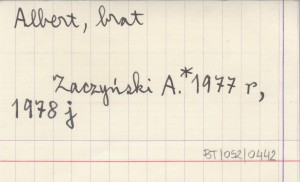 Albert, brat
Zaczyński A.* 1977 r,
1978 j
BT/052/0442